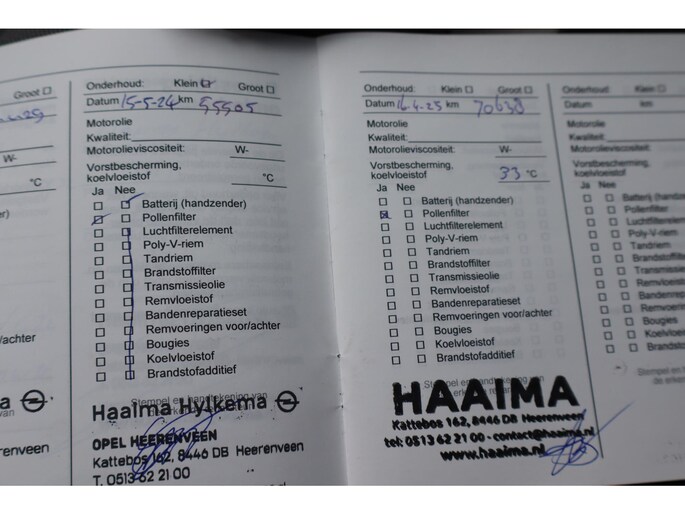 Groot
er)
achter
Heerenveen
Onderhoud: Klein Groot
Datum 15-5-24 km 55505
Motorolie
Kwaliteit:
Motorolieviscositeit: W-
Vorstbescherming,
koelvloeistof °C
Ja Nee
Batterij (handzender)
Pollenfilter
Luchtfilterelement
Poly-V-riem
Tandriem
Brandstoffilter
Transmissieolie
Remvloeistof
Bandenreparatieset
Remvoeringen voor/achter
Bougies
Koelvloeistof
Brandstofadditief
Stempel en handtekening van
Haaima Hylkema
OPEL HEERENVEEN
Kattebos 162, 8446 DB Heerenveen
T. 0513 62 21 00
Onderhoud: Klein Groot
Datum 16-4-25 km 70638
Motorolie
Kwaliteit:
Motorolieviscositeit: W-
Vorstbescherming,
koelvloeistof 33 °C
Ja Nee
Batterij (handzender)
Pollenfilter
Luchtfilterelement
Poly-V-riem
Tandriem
Brandstoffilter
Transmissieolie
Remvloeistof
Bandenreparatieset
Remvoeringen voor/achter
Bougies
Koelvloeistof
Brandstofadditief
HAAIMA
Kattebos 162, 8446 DB Heerenveen
tel: 0513 62 21 00 - contact@haaima.nl
www.haaima.nl
Onderhoud: Klein
Datum km
Motorolie
Kwaliteit:
Motorolieviscositeit:
Vorstbescherming,
koelvloeistof
Ja Nee
Batterij (handzender)
Pollenfilter
Luchtfilterelement
Poly-V-riem
Tandriem
Brandstoffilter
Transmissie
Remvloeistof
Bandenrepar
Remvoeringen
Bougies
Koelvloeistof
Brandstofadd
Stempel en h